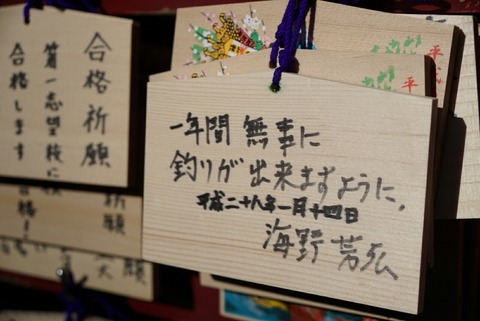 一年間 無事に
釣りが出来ますように。
平成二十八年一月十四日
海野 芳弘
合格祈願
第一志望校に
合格します
祈願
合格!
平
平